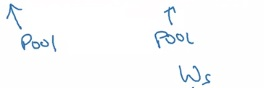 Pool Pool
Ws